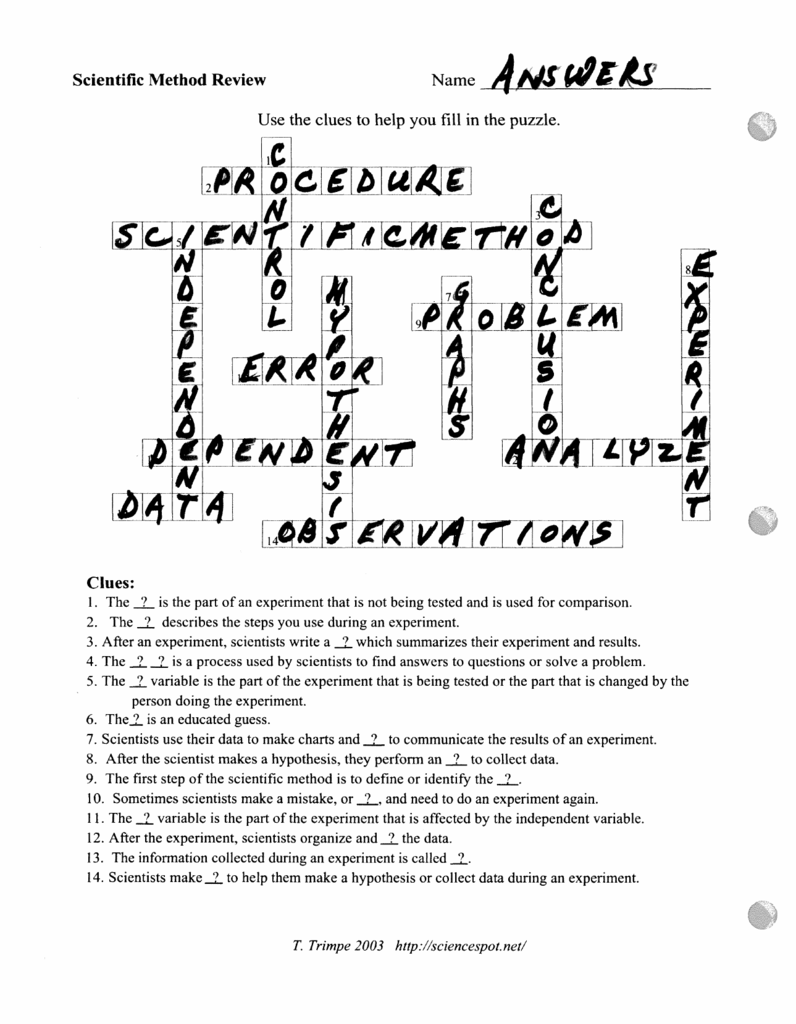 Scientific Method Review Name ANSWERS
Use the clues to help you fill in the puzzle.
1 CONTROL
2 PROCEDURE
3 CONCLUSION
SCIENTIFICMETHOD
5 INDEPENDENT
HYPOTHESIS
7 GRAPHS
8 EXPERIMENT
9 PROBLEM
ERROR
DEPENDENT
ANALYZE
DATA
14 OBSERVATIONS
Clues:
1. The ? is the part of an experiment that is not being tested and is used for comparison.
2. The ? describes the steps you use during an experiment.
3. After an experiment, scientists write a ? which summarizes their experiment and results.
4. The ? ? is a process used by scientists to find answers to questions or solve a problem.
5. The ? variable is the part of the experiment that is being tested or the part that is changed by the
person doing the experiment.
6. The ? is an educated guess.
7. Scientists use their data to make charts and ? to communicate the results of an experiment.
8. After the scientist makes a hypothesis, they perform an ? to collect data.
9. The first step of the scientific method is to define or identify the ?.
10. Sometimes scientists make a mistake, or ?, and need to do an experiment again.
11. The ? variable is the part of the experiment that is affected by the independent variable.
12. After the experiment, scientists organize and ? the data.
13. The information collected during an experiment is called ?.
14. Scientists make ? to help them make a hypothesis or collect data during an experiment.
T. Trimpe 2003 http://sciencespot.net/